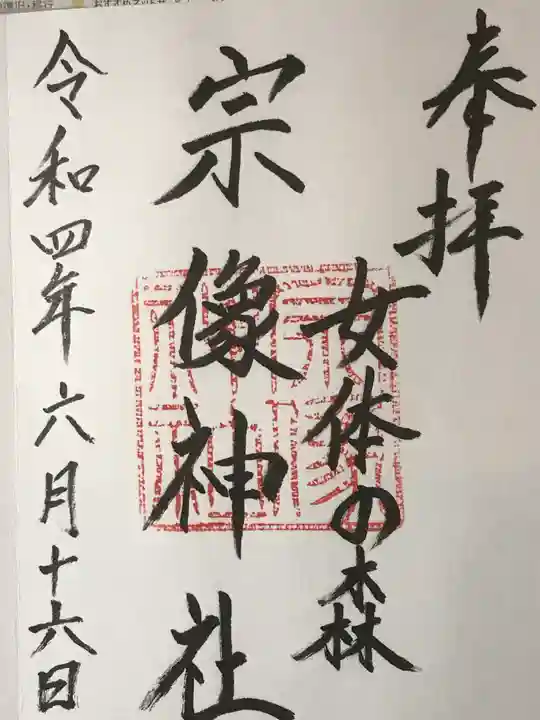 奉拝
女体の森
宗像神社
令和四年六月十六日